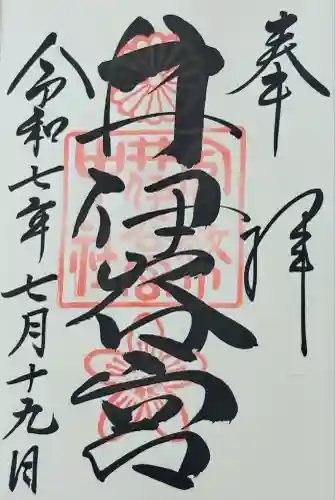 奉拝
井伊谷宮
令和七年七月十九日